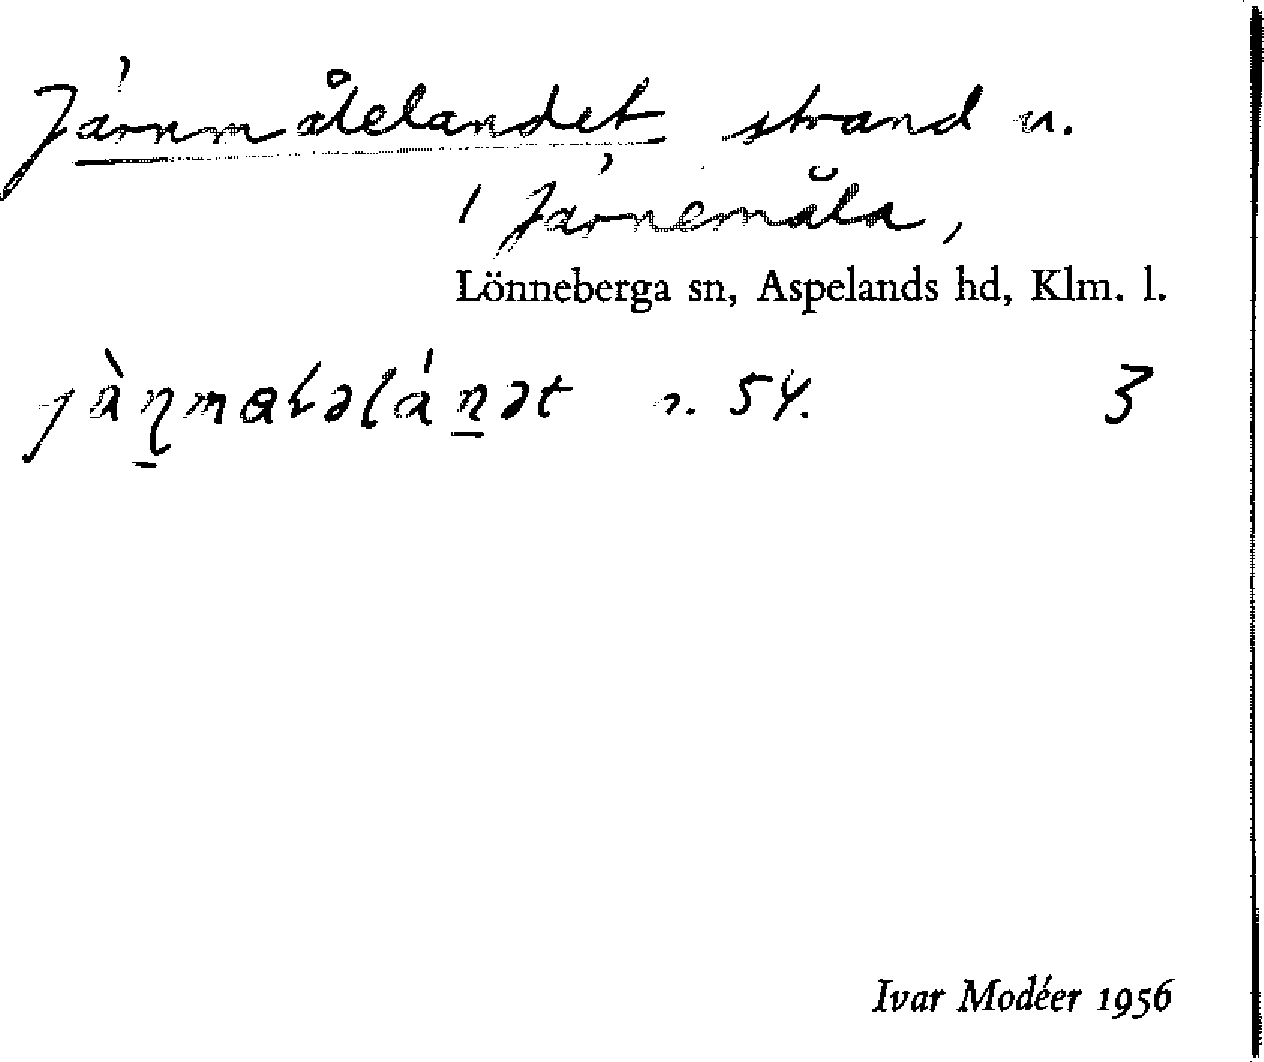 Järnmålelandet strand u.
i Järnemåla,
Lönneberga sn, Aspelands hd, Klm. l.
s. 54. 3
Ivar Modéer 1956